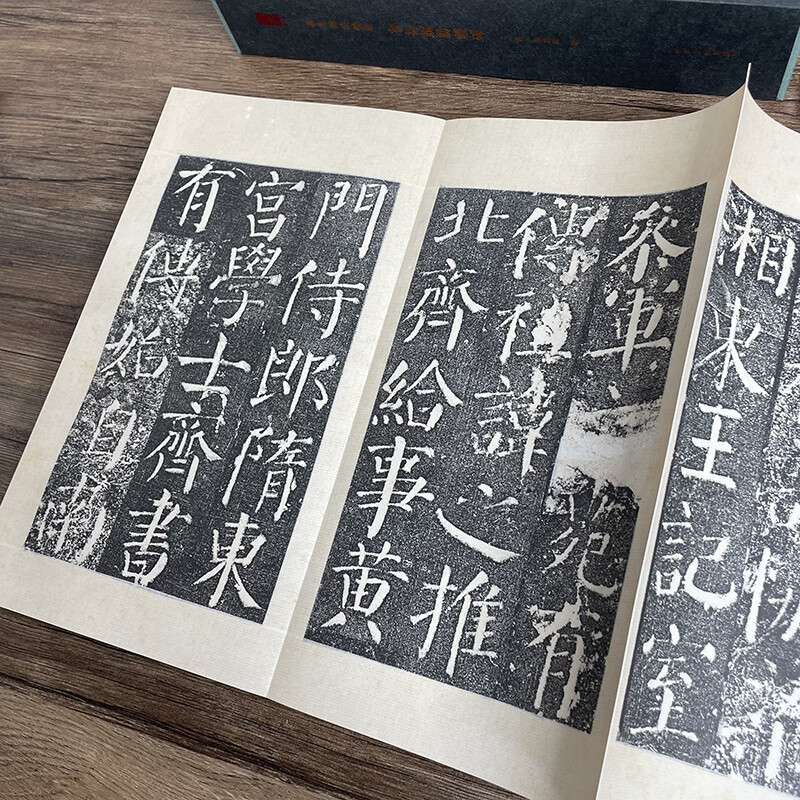 湘東王記室
參軍苑有
傳祖諱之推
北齊給事黃
門侍郎隋東
宮學士齊書
有傳始自南